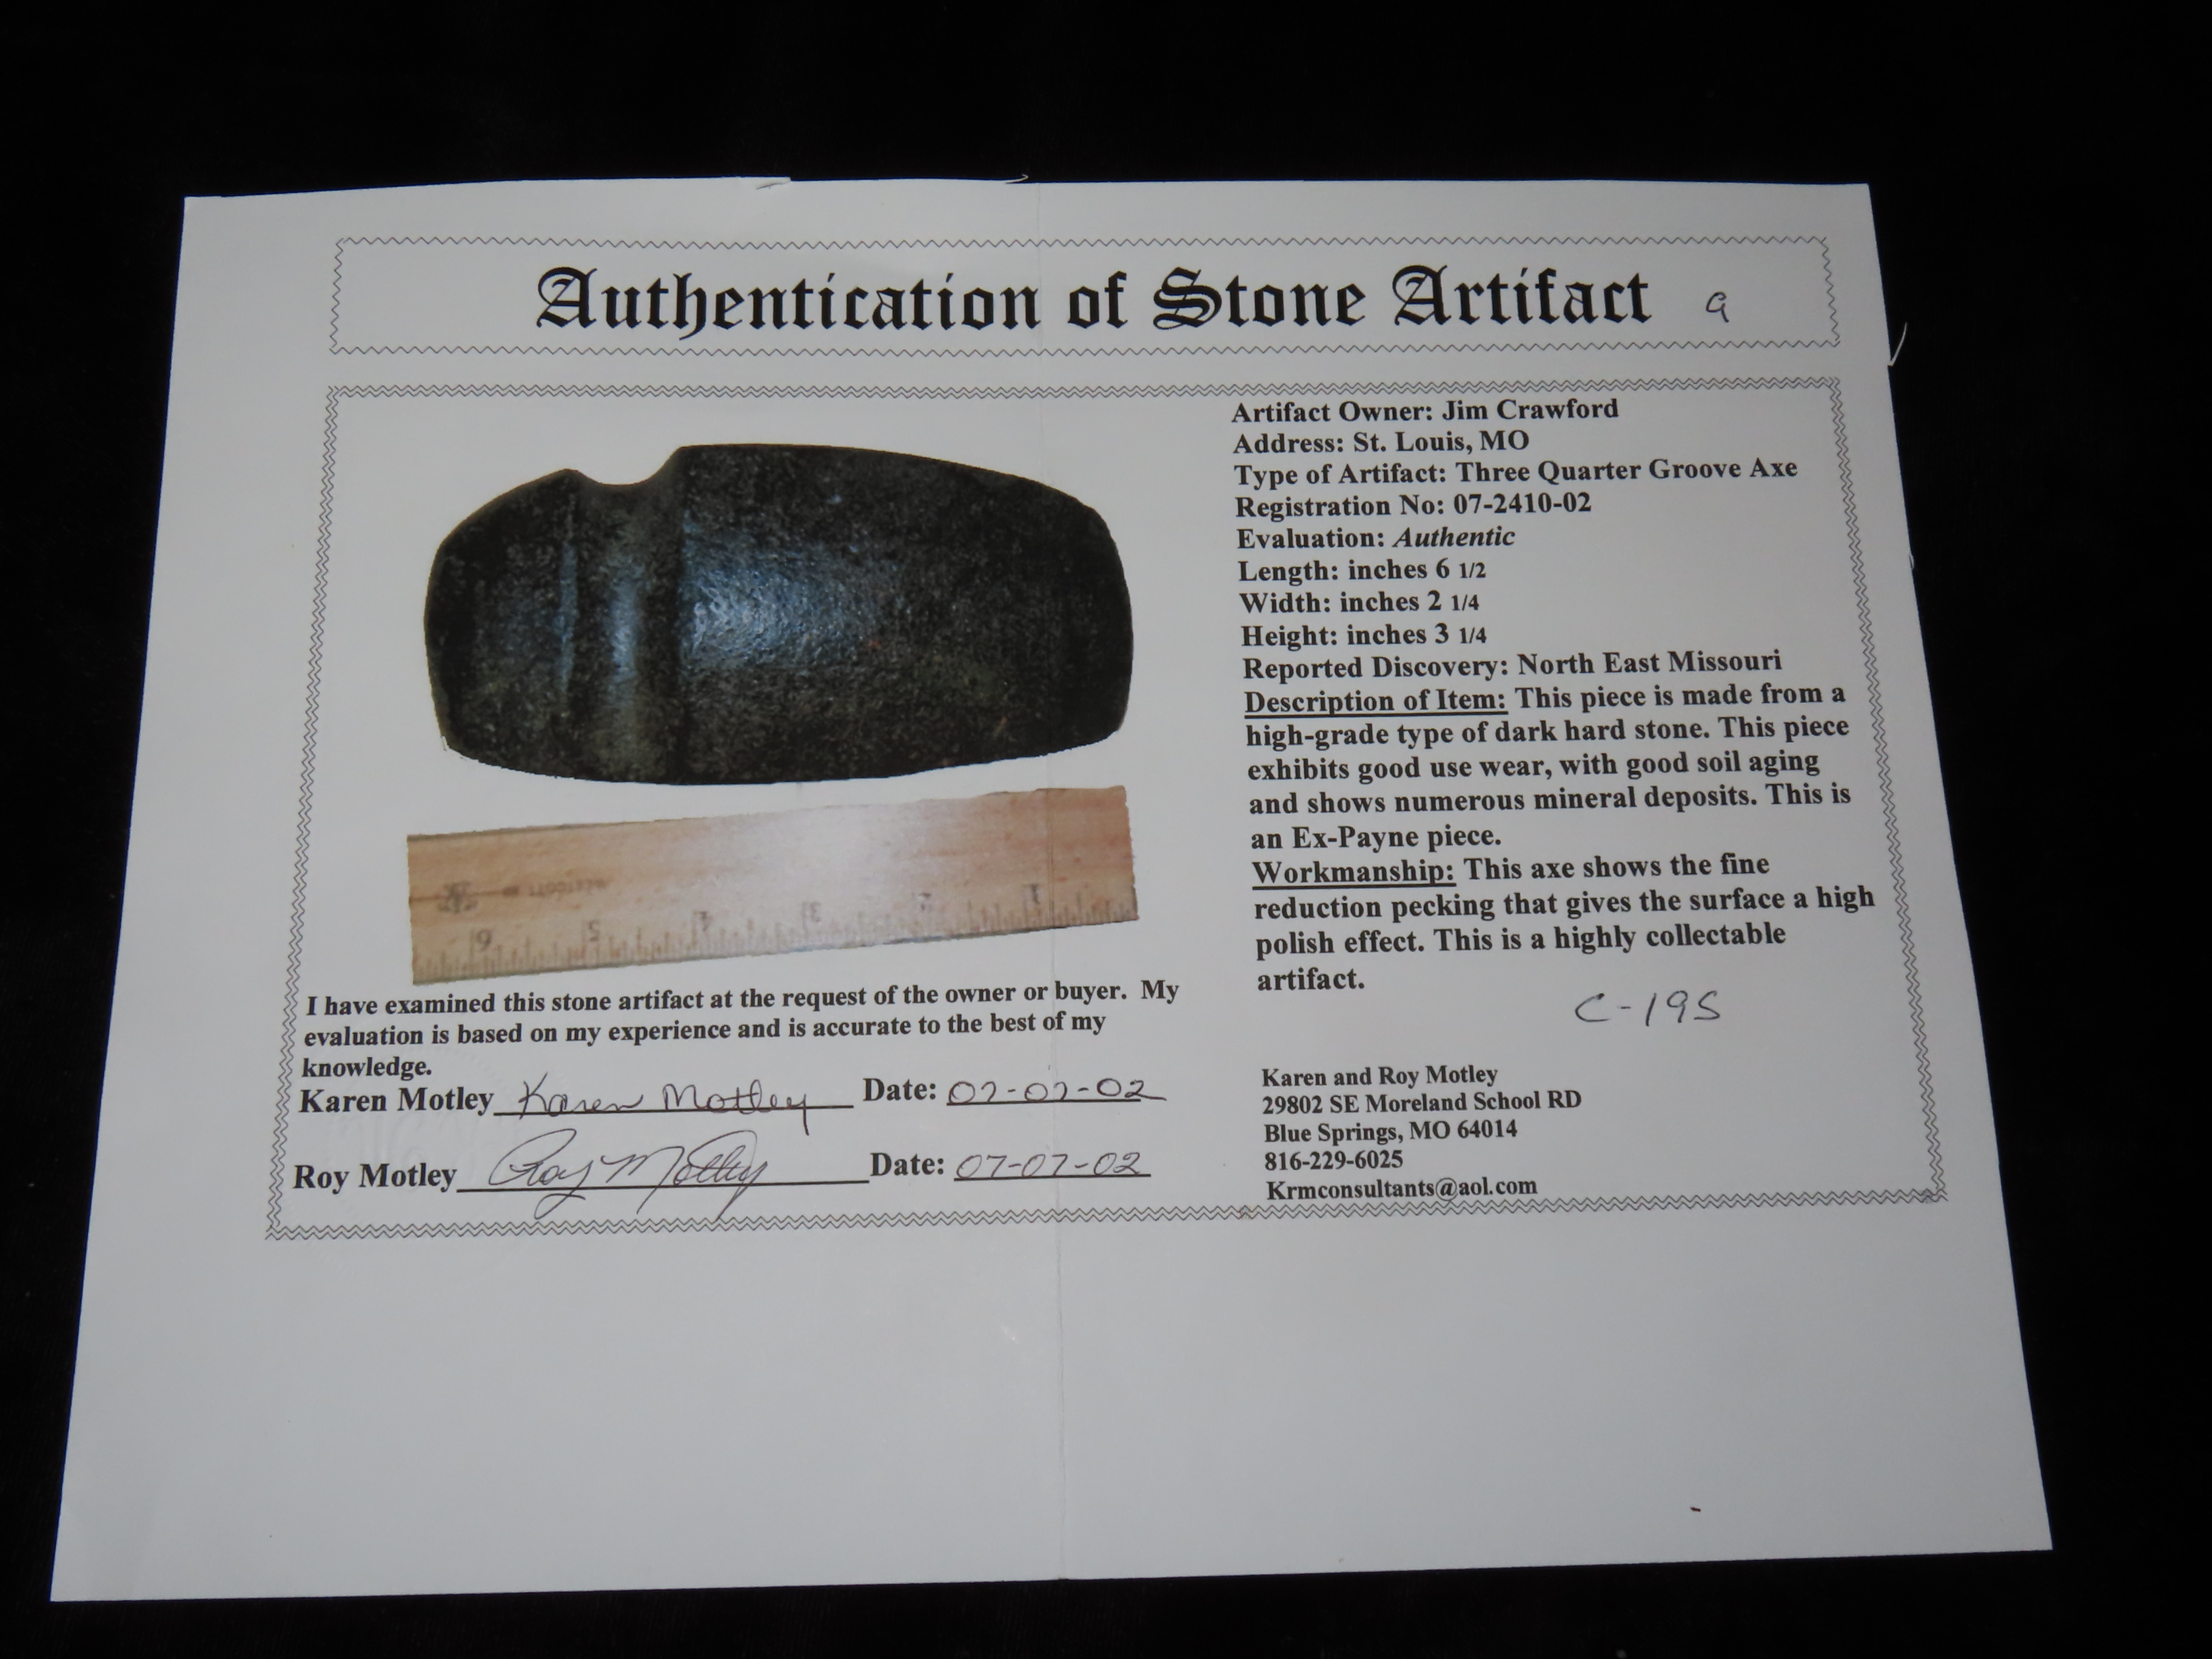 Authentication of Stone Artifact 9
Artifact Owner: Jim Crawford
Address: St. Louis, MO
Type of Artifact: Three Quarter Groove Axe
Registration No: 07-2410-02
Evaluation: Authentic
Length: inches 6 1/2
Width: inches 2 1/4
Height: inches 3 1/4
Reported Discovery: North East Missouri
Description of Item: This piece is made from a
high-grade type of dark hard stone. This piece
exhibits good use wear, with good soil aging
and shows numerous mineral deposits. This is
an Ex-Payne piece.
Workmanship: This axe shows the fine
reduction pecking that gives the surface a high
polish effect. This is a highly collectable
artifact.
C-195
1 2 3 4 5 6
I have examined this stone artifact at the request of the owner or buyer. My
evaluation is based on my experience and is accurate to the best of my
knowledge.
Karen Motley Karen Motley Date: 07-07-02
Roy Motley Roy Motley Date: 07-07-02
Karen and Roy Motley
29802 SE Moreland School RD
Blue Springs, MO 64014
816-229-6025
Krmconsultants@aol.com